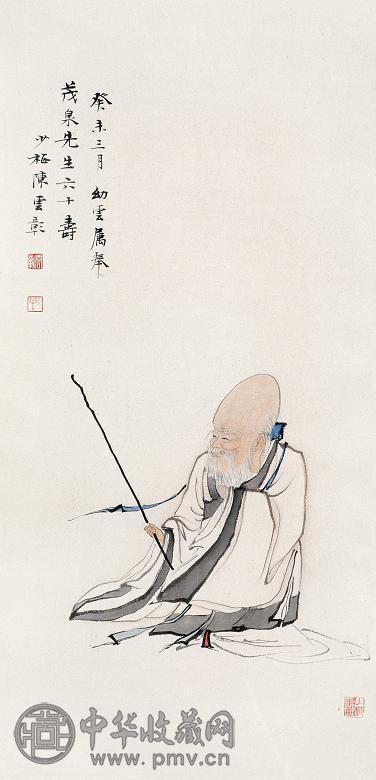 癸未三月 幼雲属奉
茂泉先生六十壽
少梅陳雲彰
中华收藏网
www.pmv.cn